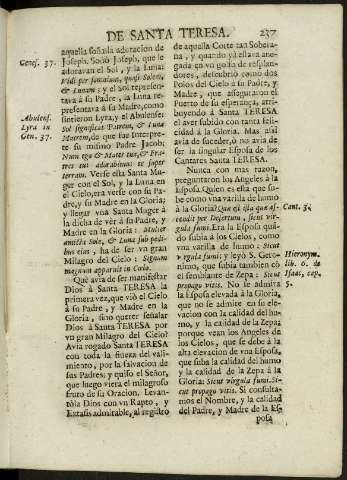 DE SANTA TERESA. 237
Genes. 37.
Abulens.
Lyra in
Gen. 37.
aquella soñada adoracion de
Joseph. Soñó Joseph, que le
adoravan el Sol, y la Luna:
Vidi per somnium, quasi Solem,
& Lunam; y el Sol represen-
tava á su Padre, la Luna re-
presentava á su Madre, como
sintieron Lyra, y el Abulense:
Sol significat Patrem, & Luna
Matrem, do que fue interpre-
te su mismo Padre Jacob;
Num ego & Mater tua, & Fra-
tres tui adorabimus te super
terram. Verse esta Santa Mu-
ger con el Sol, y la Luna en
el Cielo, era verse con su Pa-
dre, y su Madre en la Gloria;
y llegar una Santa Muger á
la dicha de vèr á su Padre, y
Madre en la Gloria: Mulier
amicta Sole, & Luna sub pedi-
bus eius, ha de ser vn gran
Milagro del Cielo: Signum
magnum apparuit in Cœlo.
Que avia de ser manifestar
Dios á Santa TERESA la
primera vez, que viò el Cielo
à su Padre, y Madre en la
Gloria, sino querer señalar
Dios á Santa TERESA por
vn gran Milagro del Cielo?
Avia rogado Santa TERESA
con toda la fineza del vali-
miento, por la salvacion de
sus Padres; y quiso el Señor,
que luego viera el milagroso
fruto de su Oracion. Levan-
tòla Dios con vn Rapto, y
Extasis admirable, al registro
de aquella Corte tan Sobera-
na, y quando yá estava ane-
gada en vn golfo de resplan-
dores, descubrió como dos
Polos del Cielo à su Padre, y
Madre, que aseguraron el
Puerto de su esperança, atri-
buyendo à Santa TERESA
el aver subido con tanta feli-
cidad á la Gloria. Mas assi
avia de suceder, o no avia de
ser la singular Esposa de los
Cantares Santa TERESA.
Nunca con mas razon,
preguntaron los Angeles à la
Esposa. Quien es esta que su-
be como vna varilla de humo
à la Gloria? Quæ est ista quæ as-
cendit per Desertum, sicut vir-
gula fumi. Era la Esposa quã-
do subia á los Cielos, como
vna varilla de humo: Sicut
virgula fumi; y leyó S. Gero-
nimo, que subia tambien cõ
el semblante de Zepa: Sicut
propago vitis. No se admira
la Esposa elevada á la Gloria,
que no se admire en su ele-
vacion con la calidad del hu-
mo, y la calidad de la Zepa;
porque vean los Angeles de
los Cielos, que se debe à la
alta elevacion de vna Esposa,
que suba la calidad del humo
y la calidad de la Zepa á la
Gloria: Sicut virgula fumi. Si-
cut propago vitis. Si consulta-
mos el Nombre, y la calidad
del Padre, y Madre de la Es-
posa
Cant. 3.
Hieronym.
lib. 6. in
Isai, cap.
5.